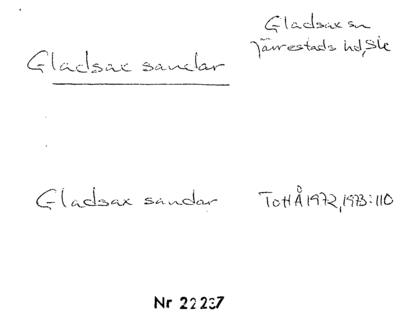 Gladsax sn
Järrestads hd, Sk
Gladsax sandar
Gladsax sandar
TotHÅ 1972, 1973:110
Nr 22237